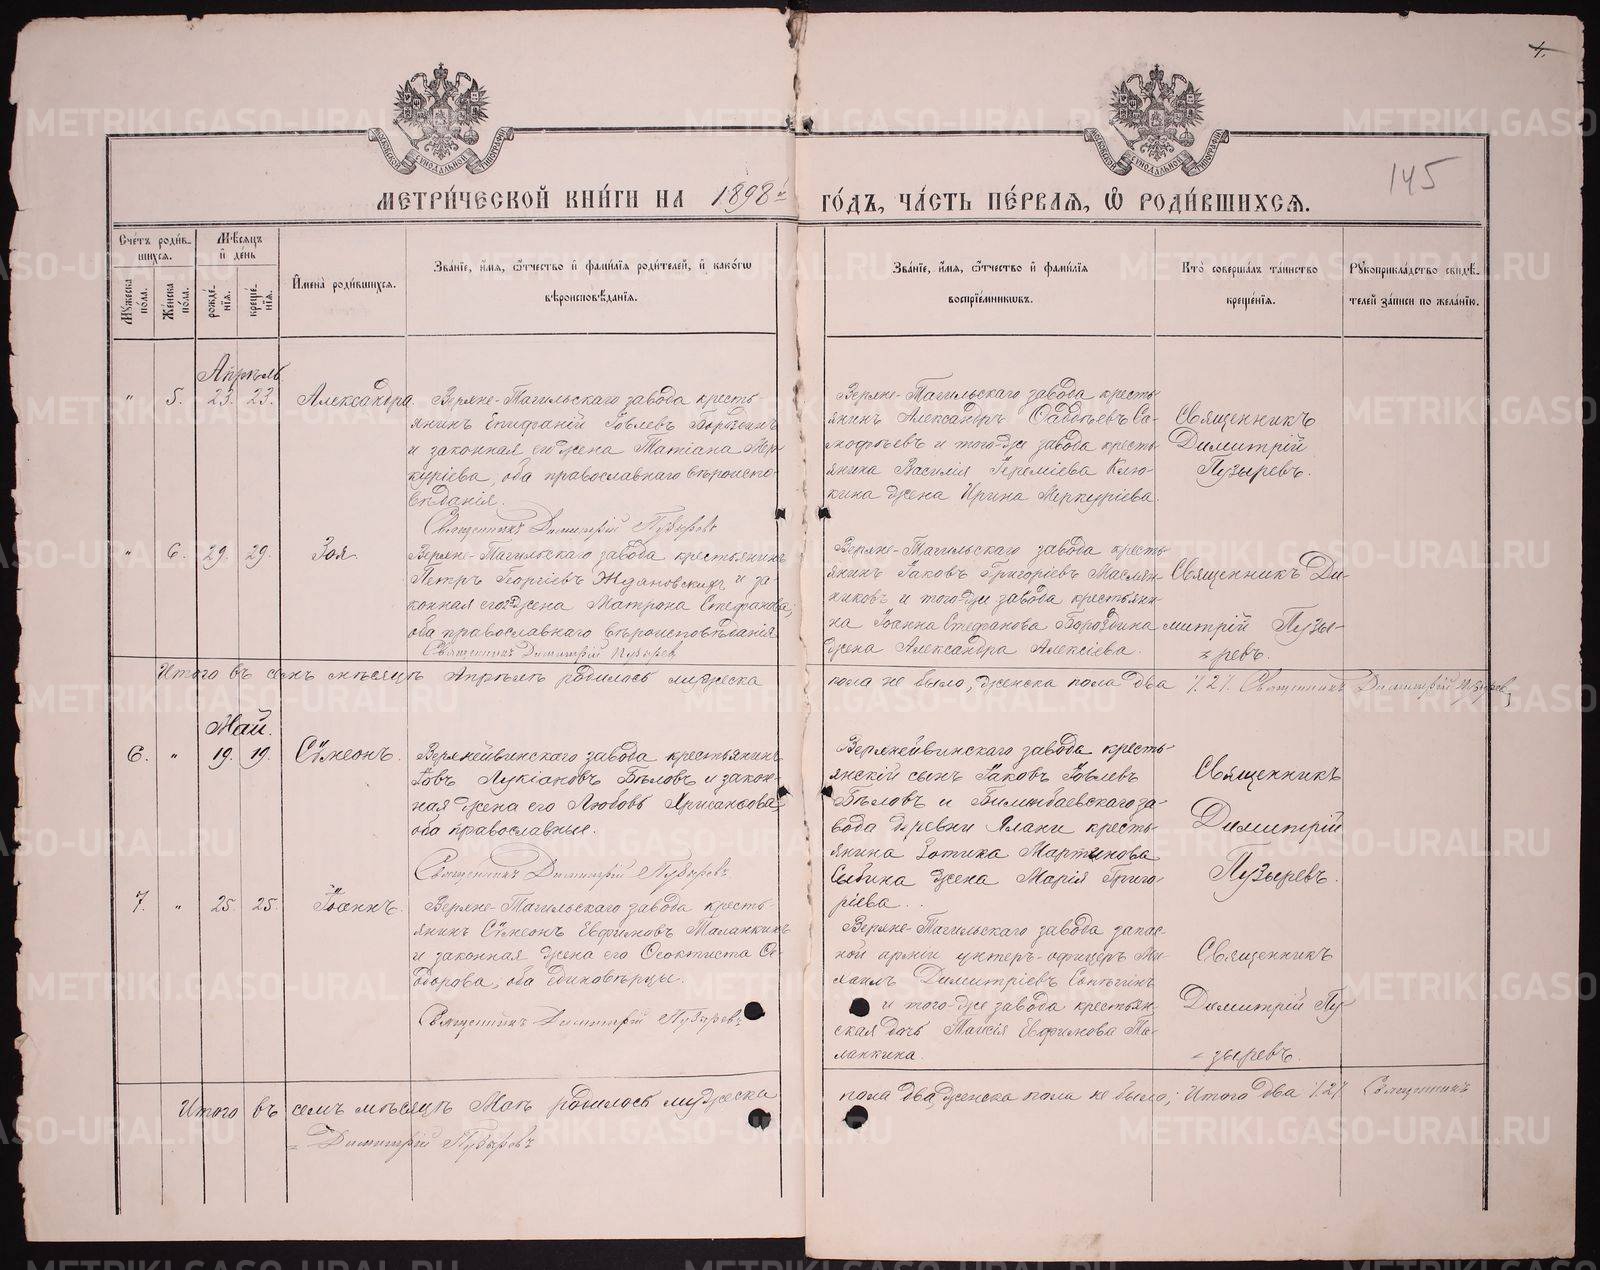 4.
145
МОСКОВСКОЙ СѴНОДАЛЬНОЙ ТИПОГРАФІИ
МОСКОВСКОЙ СѴНОДАЛЬНОЙ ТИПОГРАФІИ
МЕТРИ́ЧЕСКОЙ КНИ́ГИ НА 1898й ГО́ДЪ, ЧА́СТЬ ПЕ́РВАЯ, Ѡ҆ РОДИ́ВШИХСЯ.
Сче́тъ роди́в-
шихся.
Мꙋ́жеска по́ла.
Же́нска по́ла.
Мѣ́сяцъ и҆ де́нь
рожде́-нїя.
креще́-нїя.
И҆мена̀ роди́вшихся.
Зва́нїе, и҆́мя, ѻ҆́тчество и҆ фами́лїя роди́телей, и҆ како́гѡ
вѣроисповѣ́данїя.
Зва́нїе, и҆́мя, ѻ҆́тчество и҆ фами́лїя
воспрїе́мниковъ.
Кто̀ соверша́лъ та́инство
креще́нїя.
Рꙋкоприкла́дство свидѣ́-
телей за́писи по жела́нїю.
Апрѣль
" 5. 23. 23. Александра.
Верхне-Тагильскаго завода кресть-
янинъ Епифаній Іовлевъ Бороздинъ
и законная его жена Татіана Мер-
куріева, оба православнаго вѣроиспо-
вѣданія.
Священникъ Димитрій Пузыревъ
Верхне-Тагильскаго завода кресть-
янинъ Александръ
и того-же завода кресть-
янина Василія Іереміева Клю-
кина жена Ирина Меркуріева.
Священникъ
Димитрій
Пузыревъ.
" 6. 29. 29. Зоя.
Верхне-Тагильскаго завода крестьянинъ
Петръ Георгіевъ Ждановскихъ и за-
конная его жена Матрона Стефанова,
оба православнаго вѣроисповѣданія.
Священникъ Димитрій Пузыревъ
Верхне-Тагильскаго завода кресть-
янинъ Іаковъ Григоріевъ Маслян-
никовъ и того-же завода крестьяни-
на Іоанна Стефанова Бороздина
жена Александра Алексіева.
Священникъ Ди-
митрій Пузы-
ревъ.
Итого въ семъ мѣсяцѣ Апрѣлѣ родилось мужеска пола не было, женска пола два /.2/. Священникъ Димитрій Пузыревъ
Май.
6. " 19. 19. Сѵмеонъ.
Верхнейвинскаго завода крестьянинъ
Іовъ Лукіановъ Бѣловъ и закон-
ная жена его Любовь Хрисанѳова
оба православные.
Священникъ Димитрій Пузыревъ
Верхнейвинскаго завода кресть-
янскій сынъ Іаковъ Іовлевъ
Бѣловъ и Билимбаевскаго за-
вода деревни кресть-
янина Зотика Мартынова
жена Марія Григо-
ріева.
Священникъ
Димитрій
Пузыревъ.
7. " 25. 25. Іоаннъ.
Верхне-Тагильскаго завода кресть-
янинъ Сѵмеонъ Евфимовъ Маланкинъ
и законная жена его Ѳеоктиста Ѳе-
одорова, оба единовѣрцы.
Священникъ Димитрій Пузыревъ
Верхне-Тагильскаго завода запас-
ной арміи унтеръ-офицеръ Ми-
хаилъ Димитріевъ
и того-же завода крестьян-
ская дочь Таисія Евфимова Ма-
ланкина.
Священникъ
Димитрій Пу-
зыревъ.
Итого въ семъ мѣсяцѣ Маѣ родилось мужеска пола два, женска пола не было; Итого два /.2/. Священникъ
Димитрій Пузыревъ